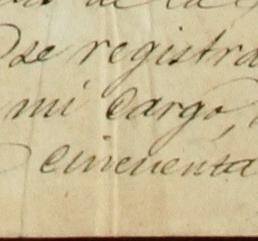 de la
se registra
mi cargo,
cincuenta